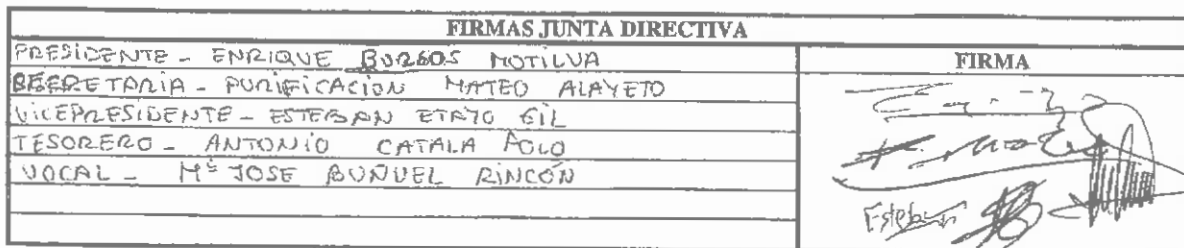 FIRMAS JUNTA DIRECTIVA
PRESIDENTE - ENRIQUE BURGOS MOTILVA
FIRMA
SECRETARIA - PURIFICACIÓN MATEO ALAYETO
VICEPRESIDENTE - ESTEBAN ETAYO GIL
TESORERO - ANTONIO CATALA POLO
VOCAL - Mª JOSE BUÑUEL RINCÓN
Esteban